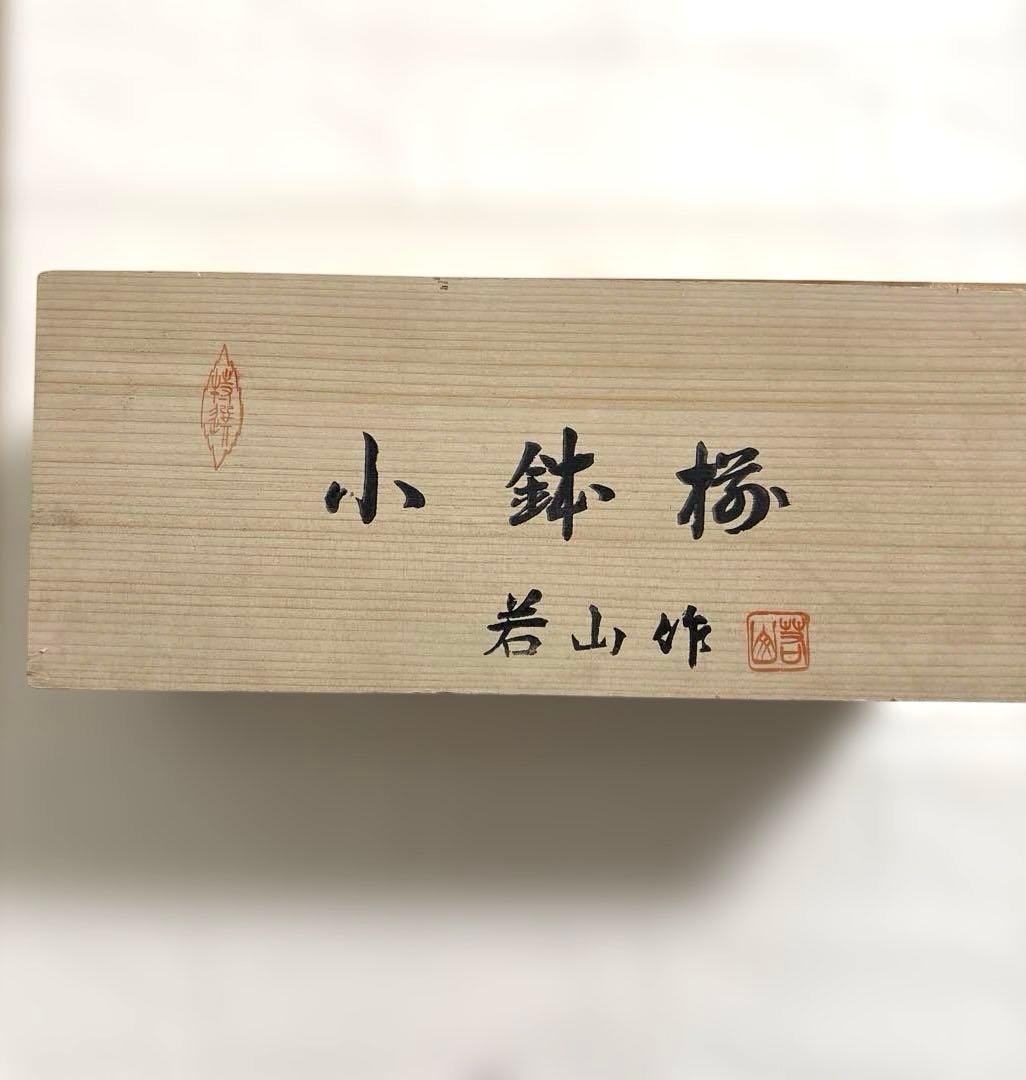 特選
小鉢揃
若山作
若山